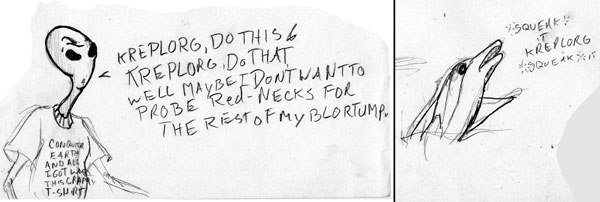 KREPLORG, DO THIS
KREPLORG, DO THAT
WELL MAYBE I DONT WANT TO
PROBE Red-NECKS FOR
THE REST OF MY BLORTUMP.
CONQUER
EARTH
AND ALL
I GOT WAS
THIS CRAPPY
T-SHIRT
SQUEAK
IT
KREPLORG
SQUEAK